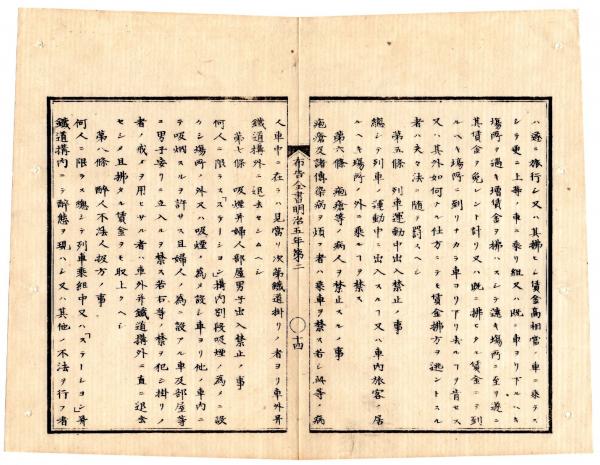 ハ遂ニ旅行シ又ハ其拂セシ賃金高相當ノ車ニ乗ラス
シテ更ニ上等ノ車ニ乗リ組又ハ既ニ車ヨリ下ルヘキ
塲所ヲ過キ増賃金ヲ拂ハスシテ遠キ塲所ニ至リ遂ニ
其賃金ヲ免レント計リ又ハ既ニ拂セタル賃金ニテ到
ルヘキ塲所ニ到リナカラ車ヨリ下リ去ルヿヲ肯セス
又ハ其外如何ナル仕方ニテモ賃金拂方ヲ遁ントスル
者ハ夫々法ニ随テ罰スヘシ
第五條 列車運動中出入禁止ノ事
總シテ列車ノ運動中ニ出入スルヿ又ハ車内旅客ノ居
ルヘキ塲所ノ外ニ乗ルヿヲ禁ス
第六條 疱瘡等ノ病人ヲ禁止スルノ事
疱瘡及諸傳染病ヲ煩フ者ハ乗車ヲ禁ス若シ此等ノ病
布告全書明治五年第二 十四
人車中ニ在ラハ見當リ次第鐵道掛リノ者ヨリ車外并
鐵道搆外ニ退去セシムヘシ
第七條 吸烟并婦人部屋男子出入禁止ノ事
何人ニ限ラス「ステーシヨン」搆内別段吸烟ノ為メニ設
ケシ塲所ノ外又ハ吸烟ノ為メ設シ車ヨリ他ノ車内ニ
テ吸烟スルヲ許サス且婦人ノ為ニ設アル車及部屋等
ニ男子妄リニ立入ルヲ禁ス若右等ノ禁ヲ犯シ掛リノ
者ノ戒メヲ用ヒサル者ハ車外并鐵道搆外ニ直ニ退去
セシメ且拂タル賃金ヲモ取上クヘシ
第八條 醉人不法人扱方ノ事
何人ニ限ラス總シテ列車乗組中又ハ「ステーシヨン」并
鐵道搆内ニテ醉態ヲ現ハシ又ハ其他ノ不法ヲ行フ者